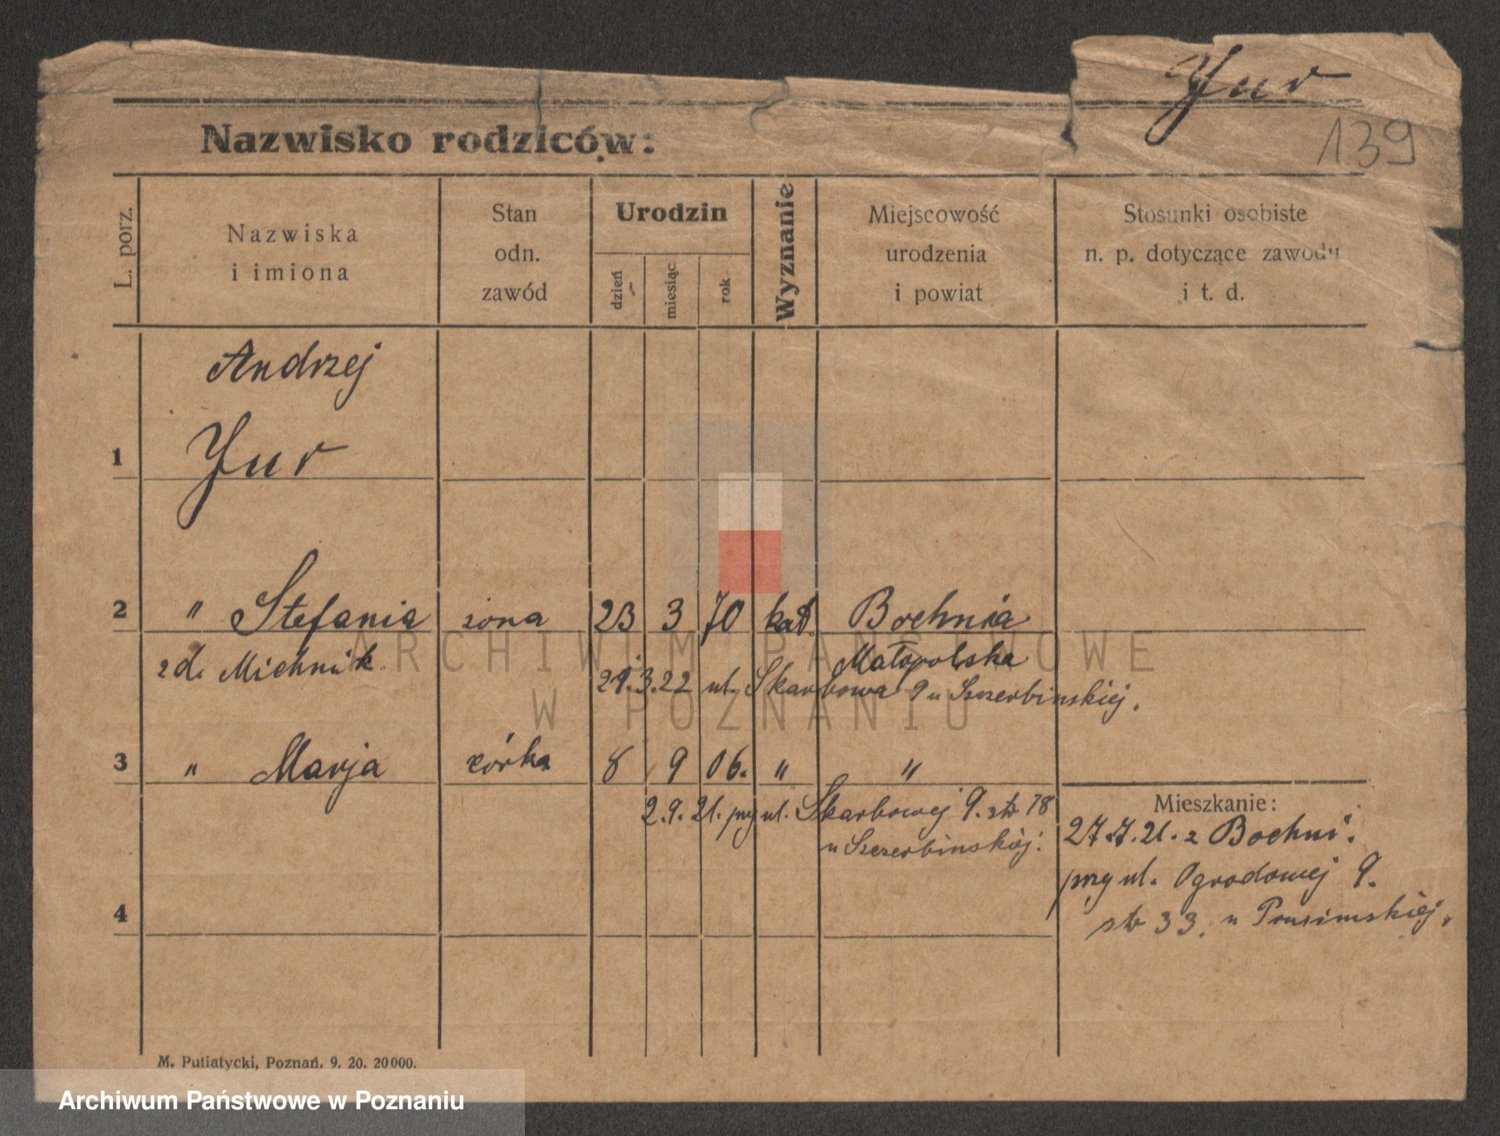 Yur
139
Nazwisko rodziców:
L. porz.
Nazwiska
i imiona
Stan
odn.
zawód
Urodzin
dzień
miesiąc
rok
Wyznanie
Miejscowość
urodzenia
i powiat
Stosunki osobiste
n. p. dotyczące zawodu
i t. d.
Andrzej
1 Yur
2 " Stefania żona 23 3 70 kat. Bochnia
zd. Michnik Małopolska
29.3.22 ul. Skarbowa 9 u Szczerbińskiej.
3 " Marja córka 8 9 06. " "
2.9.21. przy ul. Skarbowej 9. str 78
u Szczerbińskiej.
Mieszkanie:
27.7.21. z Bochni.
przy ul. Ogrodowej 9.
4
str 33. u Prusimskiej.
M. Putiatycki, Poznań. 9. 20. 20000.
ARCHIWUM PAŃSTWOWE
W POZNANIU
Archiwum Państwowe w Poznaniu